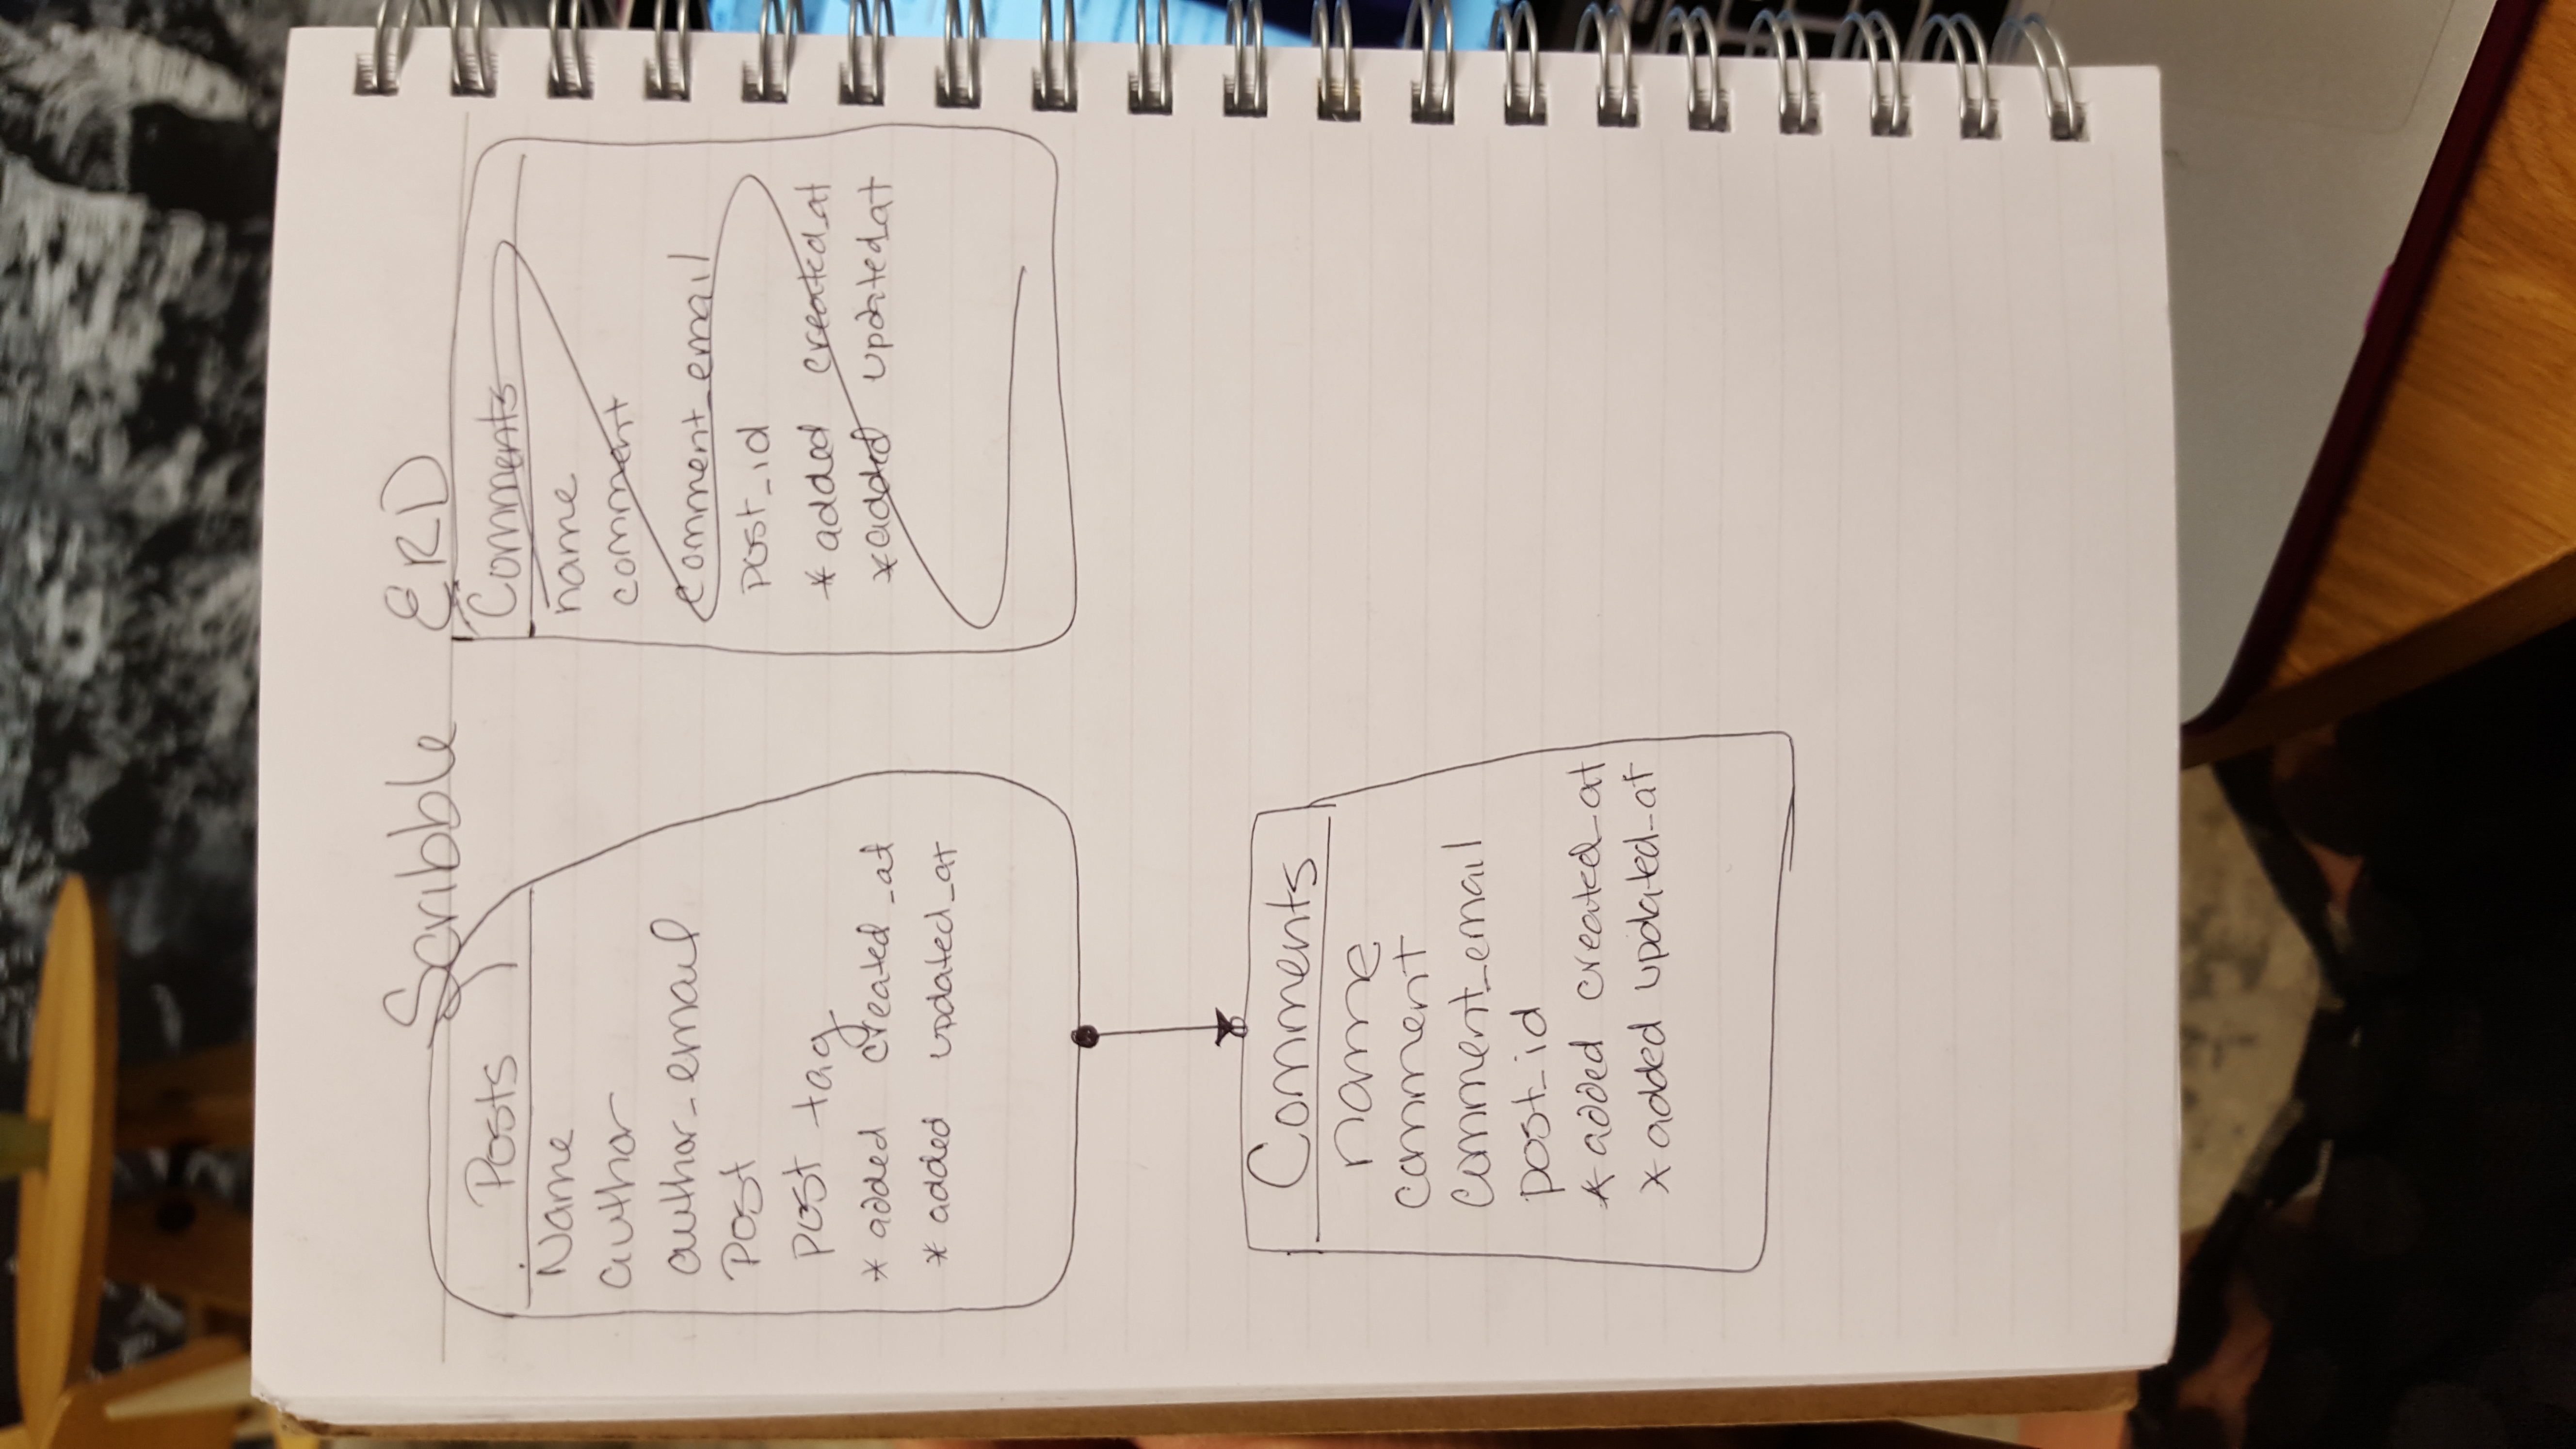 Scribble ERD
Posts
Name
author
author_email
Post
post tag
* added created_at
* added updated_at
Comments
name
comment
comment_email
post_id
* added created_at
* added updated_at
Comments
name
comment
comment_email
post_id
* added created_at
* added updated_at